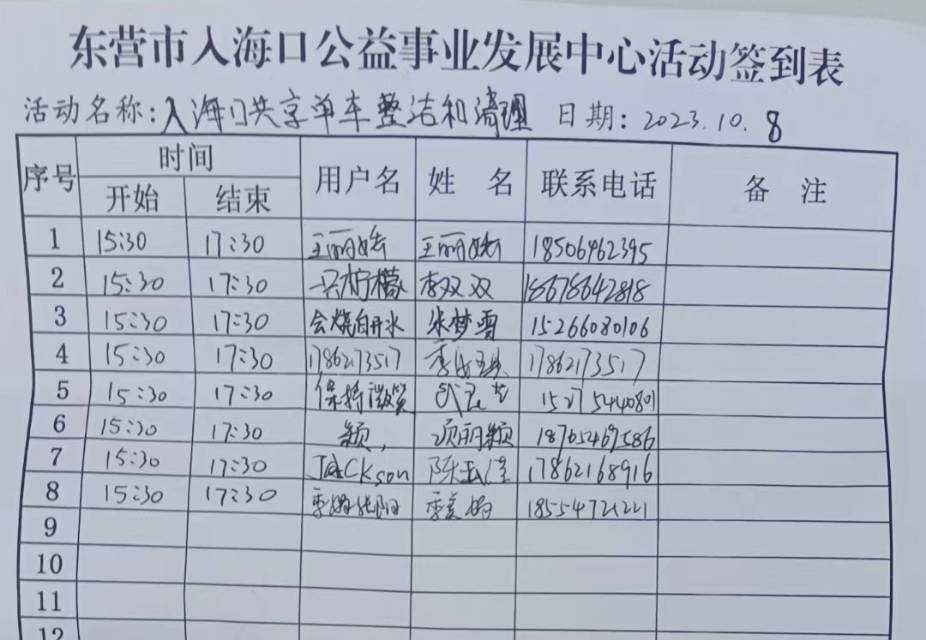 东营市入海口公益事业发展中心活动签到表
活动名称:入海口共享单车整洁和清理 日期:2023.10.8
序号 时间 用户名 姓名 联系电话 备注
开始 结束
1 15:30 17:30 王丽姑 王丽姑 18506462395
2 15:30 17:30 买柠檬 李双双 18678642818
3 15:30 17:30 会烧白开水 朱梦雪 15266080106
4 15:30 17:30 17862173517 季 17862173517
5 15:30 17:30 保持微笑 15275440801
6 15:30 17:30 颖, 项丽颖
7 15:30 17:30 JaCKson 陈 17862168916
8 15:30 17:30 季美 18554721221
9
10
11
12